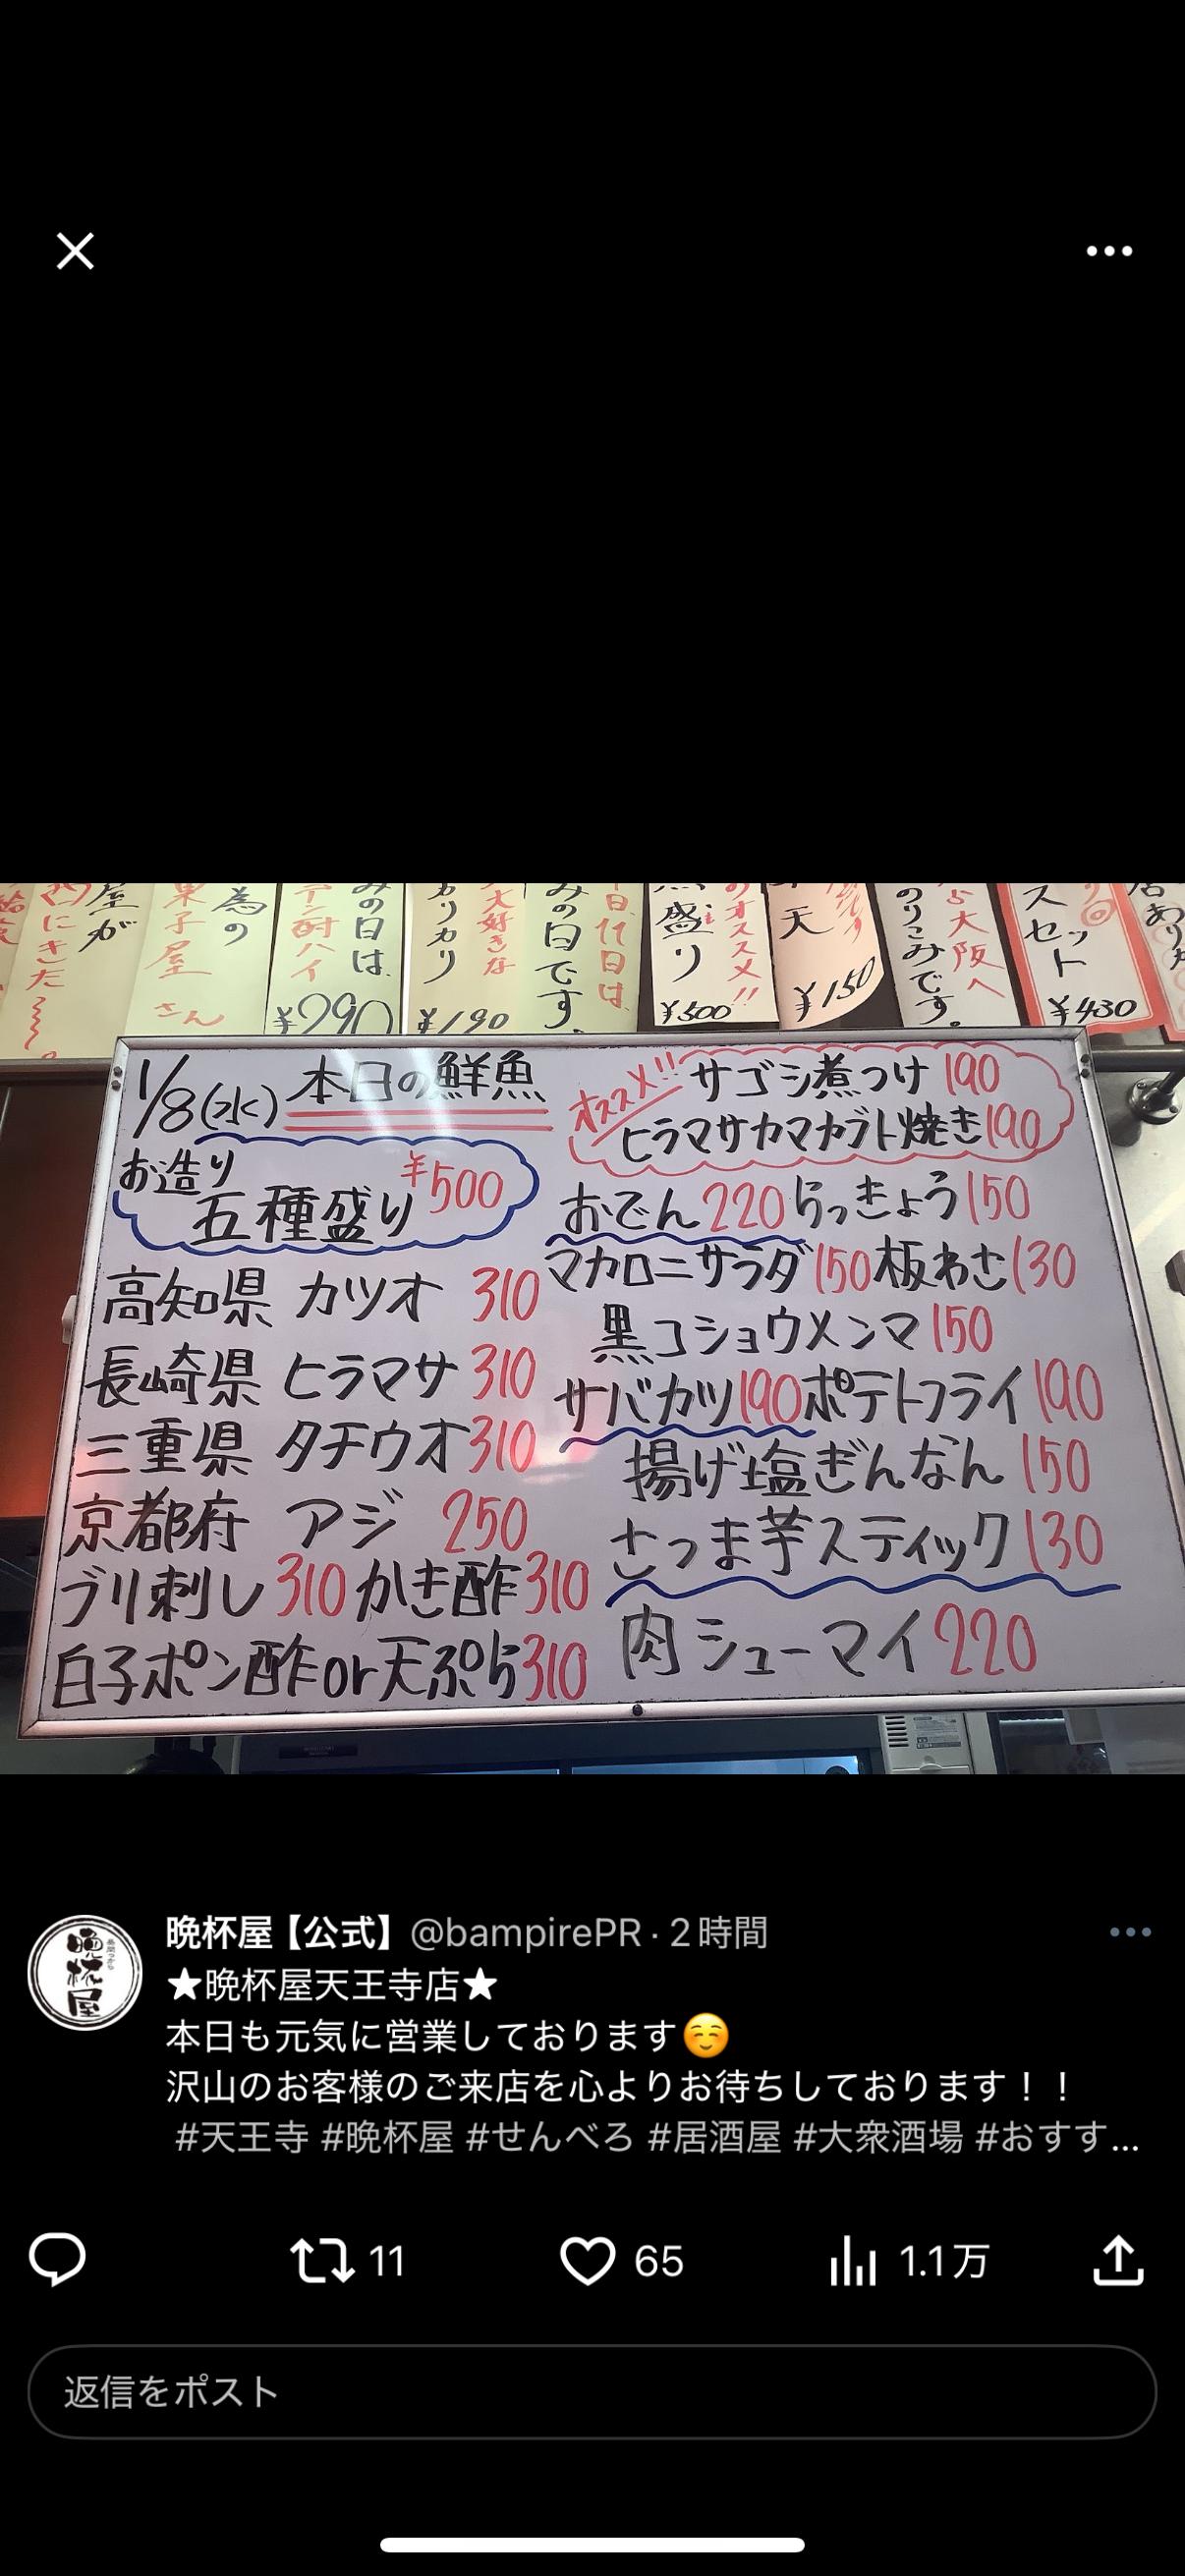 屋が
西にきた〜〜。
為の
菓子屋さん
みの日は、
¥290
カリカリ
大好きな
¥190
みの日です。
日、17日は、
盛り
のオススメ!!
¥500
天
¥150
のりこみです。
大阪へ
スセット
¥430
1/8(水) 本日の鮮魚
お造り
五種盛り ¥500
高知県 カツオ 310
長崎県 ヒラマサ 310
三重県 タチウオ 310
京都府 アジ 250
ブリ刺し 310 かき酢 310
白子ポン酢or天ぷら 310
オススメ!! サゴシ煮つけ 190
ヒラマサカマカブト焼き 190
おでん 220 らっきょう 150
マカロニサラダ 150 板わさ 130
黒コショウメンマ 150
サバカツ 190 ポテトフライ 190
揚げ塩ぎんなん 150
さつま芋スティック 130
肉シューマイ 220
晩杯屋
晩杯屋【公式】@bampirePR · 2時間
★晩杯屋天王寺店★
本日も元気に営業しております☺️
沢山のお客様のご来店を心よりお待ちしております！！
#天王寺 #晩杯屋 #せんべろ #居酒屋 #大衆酒場 #おすす...
11 65 1.1万
返信をポスト